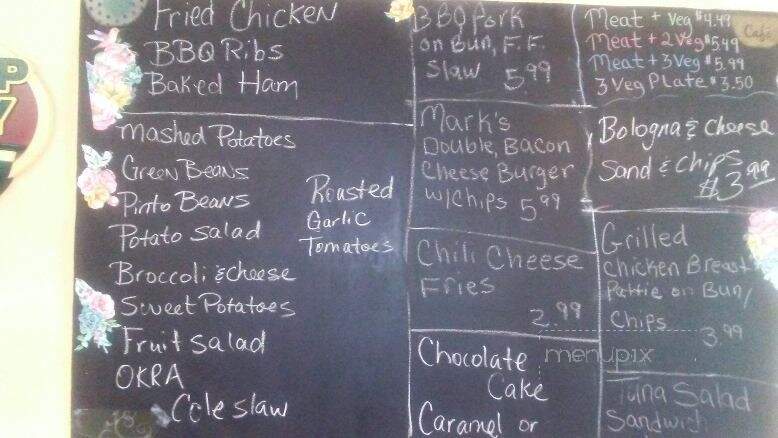 Fried Chicken
BBQ Ribs
Baked Ham
mashed Potatoes
Green Beans
Pinto Beans
Potato salad
Broccoli & cheese
Sweet Potatoes
Fruit salad
OKRA
Cole slaw
Roasted
Garlic
Tomatoes
BBQ Pork
on Bun, F.F.
Slaw 5.99
Mark's
Double, Bacon
Cheese Burger
w/chips 5.99
Chili Cheese
Fries
2.99
Chocolate
Cake
Caramel or
Meat + Veg $4.49
Meat + 2 Veg $5.49
Meat + 3 Veg $5.99
3 Veg Plate $3.50
Café
Bologna & Cheese
Sand & Chips
$3.99
Grilled
Chicken Breast
Pattie on Bun/
Chips
3.99
Tuna Salad
Sandwich
menupix